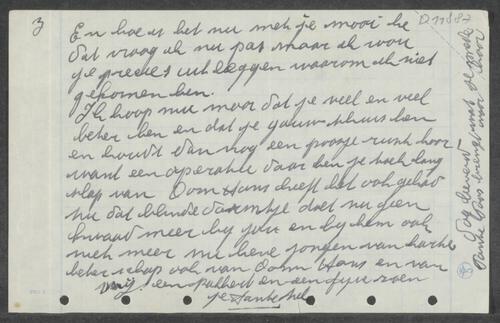 3
D 11887
En hoe is het nu met je mooi he
dat vraag ik nu pas maar ik wou
je precies uitleggen waarom ik niet
gekomen ben.
Ik hoop nu maar dat je veel en veel
beter ben en dat je gauw thuis ben
en houdt dan nog een poosje rust hoor
want een operatie daar ben je toch lang
slap van Oom Hans heeft het ook gehad
nu dat blinde darmtje doet nu geen
kwaad meer bij jou en bij hem ook
niet meer nu lieve jongen van harte
beterschap ook van Oom Hans en van
mij een pakkerd en een fijne zoen
je tante
Dag lieverd
tante Hans brengt wat je
voor hoor